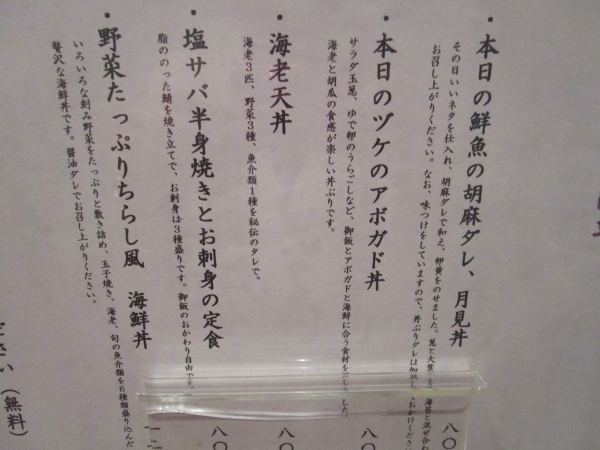 ・本日の鮮魚の胡麻ダレ、月見丼
その日いいネタを仕入れ、胡麻ダレで和え、卵黄をのせました。葱と大葉、
海苔と混ぜ合わ
お召し上がりください。なお、味つけをしていますので、丼ぶりダレは加減し
おかけください
八〇
・本日のヅケのアボガド丼
サラダ玉葱、ゆで卵のうらごしなど、御飯とアボガドと海鮮に合う食材を
した。
海老と胡瓜の食感が楽しい丼ぶりです。
八〇
・海老天丼
海老3匹、野菜3種、魚介類1種を秘伝のタレで。
八〇
・塩サバ半身焼きとお刺身の定食
脂ののった鯖を焼き立てで、お刺身は3種盛りです。御飯のおかわり自由です。
八〇
・野菜たっぷりちらし風 海鮮丼
いろいろな刻み野菜をたっぷりと敷き詰め、玉子焼き、海老、旬の魚介類を6種類盛り込んだ
贅沢な海鮮丼です。醤油ダレでお召し上がりください。
ださい(無料)